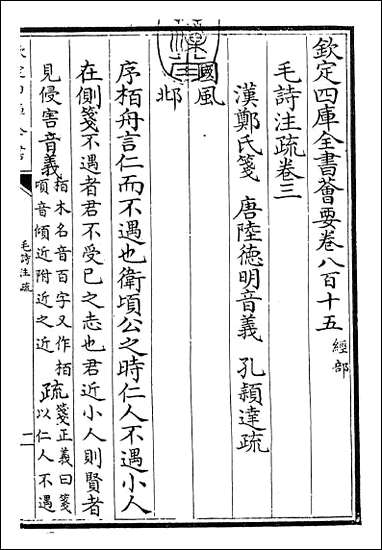 欽定四庫全書薈要卷八百十五 經部
毛詩注疏卷三
漢鄭氏箋 唐陸德明音義 孔穎達疏
國風
邶
序栢舟言仁而不遇也衛頃公之時仁人不遇小人
在側箋不遇者君不受己之志也君近小人則賢者
見侵害音義栢木名音百字又作栢
頃音傾近附近之近疏箋正義曰箋
以仁人不遇
毛詩注疏
一